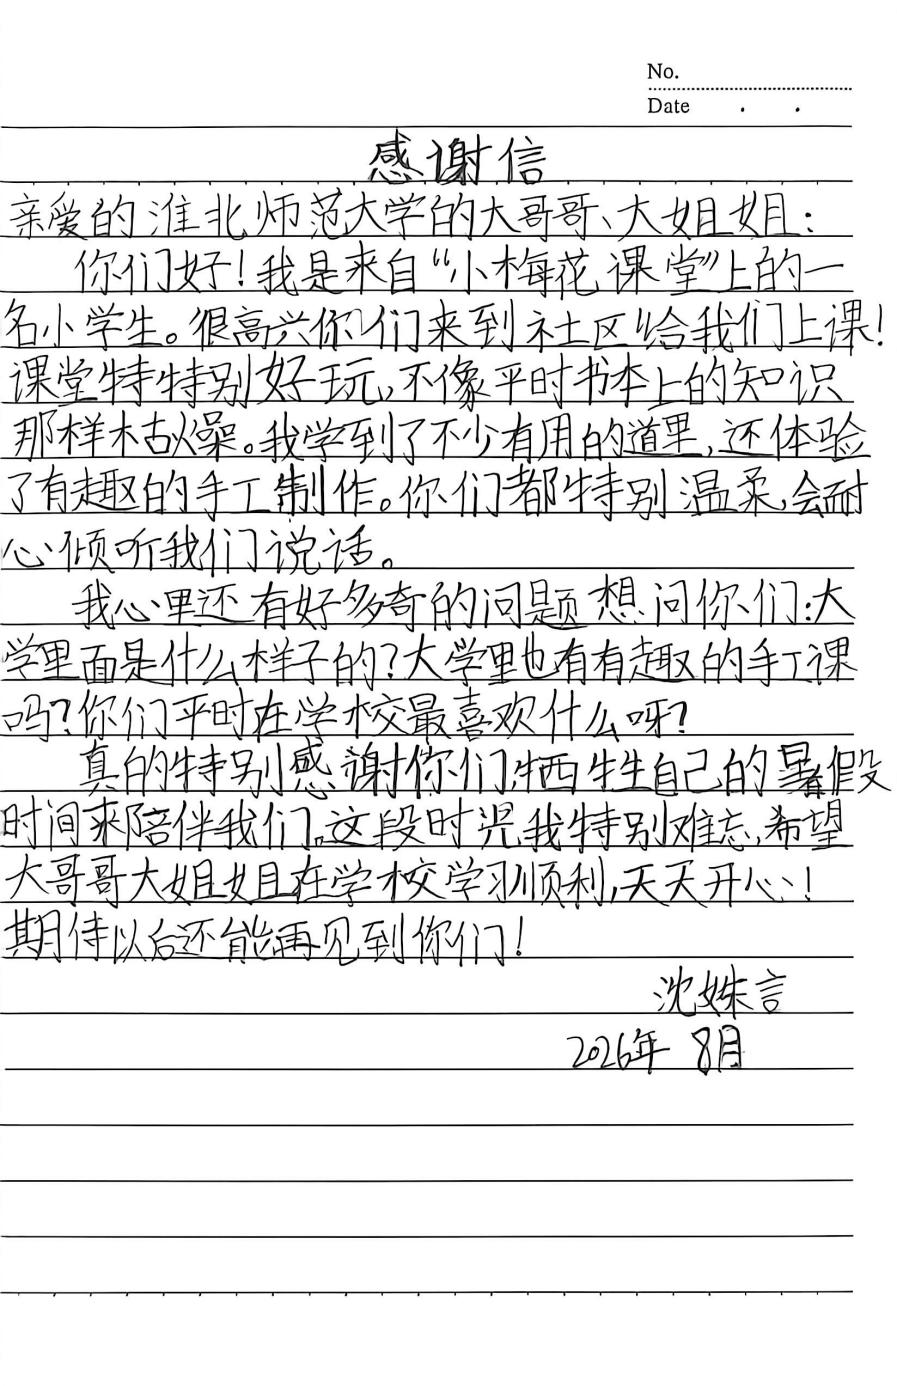 No.
Date . .
感谢信
亲爱的淮北师范大学的大哥哥、大姐姐：
你们好！我是来自“小梅花课堂”上的一
名小学生。很高兴你们来到社区给我们上课！
课堂特特别好玩，不像平时书本上的知识
那样枯燥。我学到了不少有用的道理，还体验
了有趣的手工制作。你们都特别温柔，会耐
心倾听我们说话。
我心里还有好多奇的问题想问你们：大
学里面是什么样子的？大学里也有有趣的手工课
吗？你们平时在学校最喜欢什么呀？
真的特别感谢你们，牺牲自己的暑假
时间来陪伴我们。这段时光我特别难忘，希望
大哥哥大姐姐在学校学习顺利，天天开心！
期待以后还能再见到你们！
沈姝言
2026年 8月